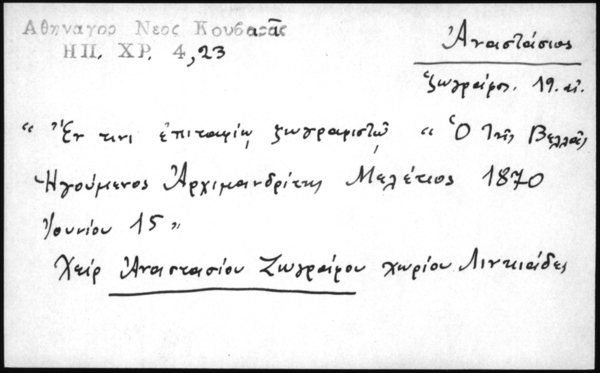 Αθηναγορ Νεος Κουβαρᾶς
ΗΠ. ΧΡ. 4,23
Ἀναστάσιος
ζωγράφος. 19. αἰ.
“ Ἔν τινι ἐπιταφίῳ ζωγραφιστῷ “ Ὁ τῆς Βελλᾶς
Ἡγούμενος Ἀρχιμανδρίτης Μελέτιος 1870
Ἰουνίου 15 ”
Χείρ Ἀναστασίου Ζωγράφου χωρίου Λιντιάδες